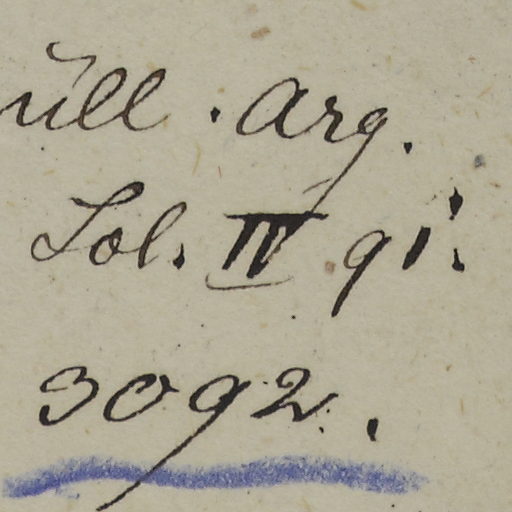 üll. Arg.
Lol. IV 91.
3092.